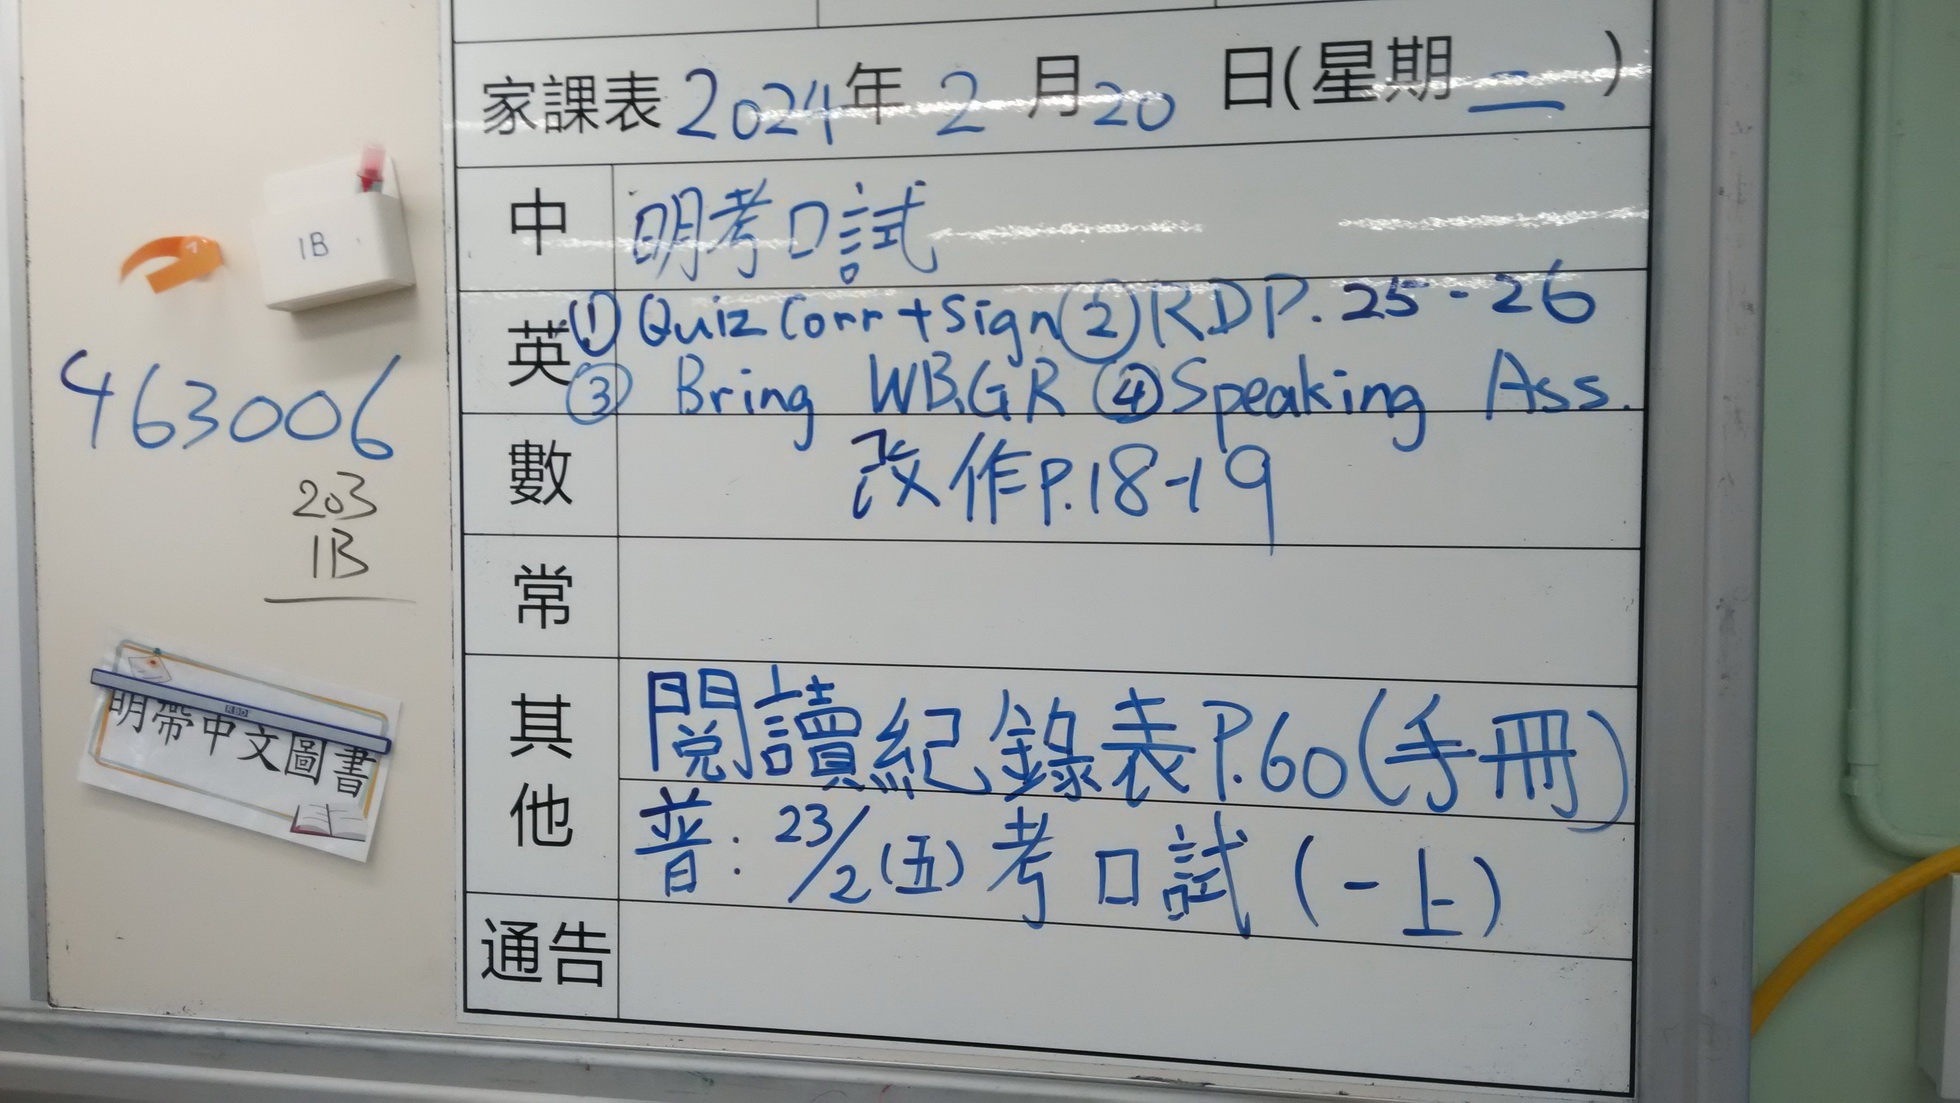 家課表 2024年 2 月 20 日(星期二)
中 明考口試
英 ① Quiz Corr + Sign ② RD P. 25-26
③ Bring WB, GR ④ Speaking Ass.
數 改作P.18-19
常
其他 閱讀紀錄表P.60(手冊)
普: 23/2(五)考口試(一上)
通告
1B
463006
203
1B
明帶中文圖書